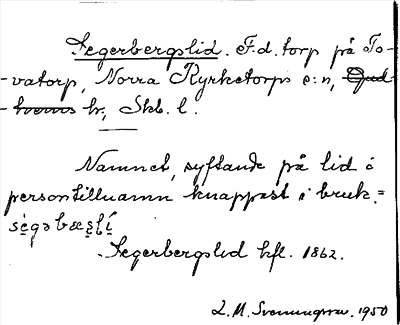 Segerbergslid. F.d. torp på To-
-vatorp, Norra Kyrketorps s:n, Gud-
-hems hr, Skb. l.
Namnet, syftande på lid o
persontillnamn knappast i bruk.=
Segerbergslid hfl. 1862.
L. M. Svenungsson. 1950